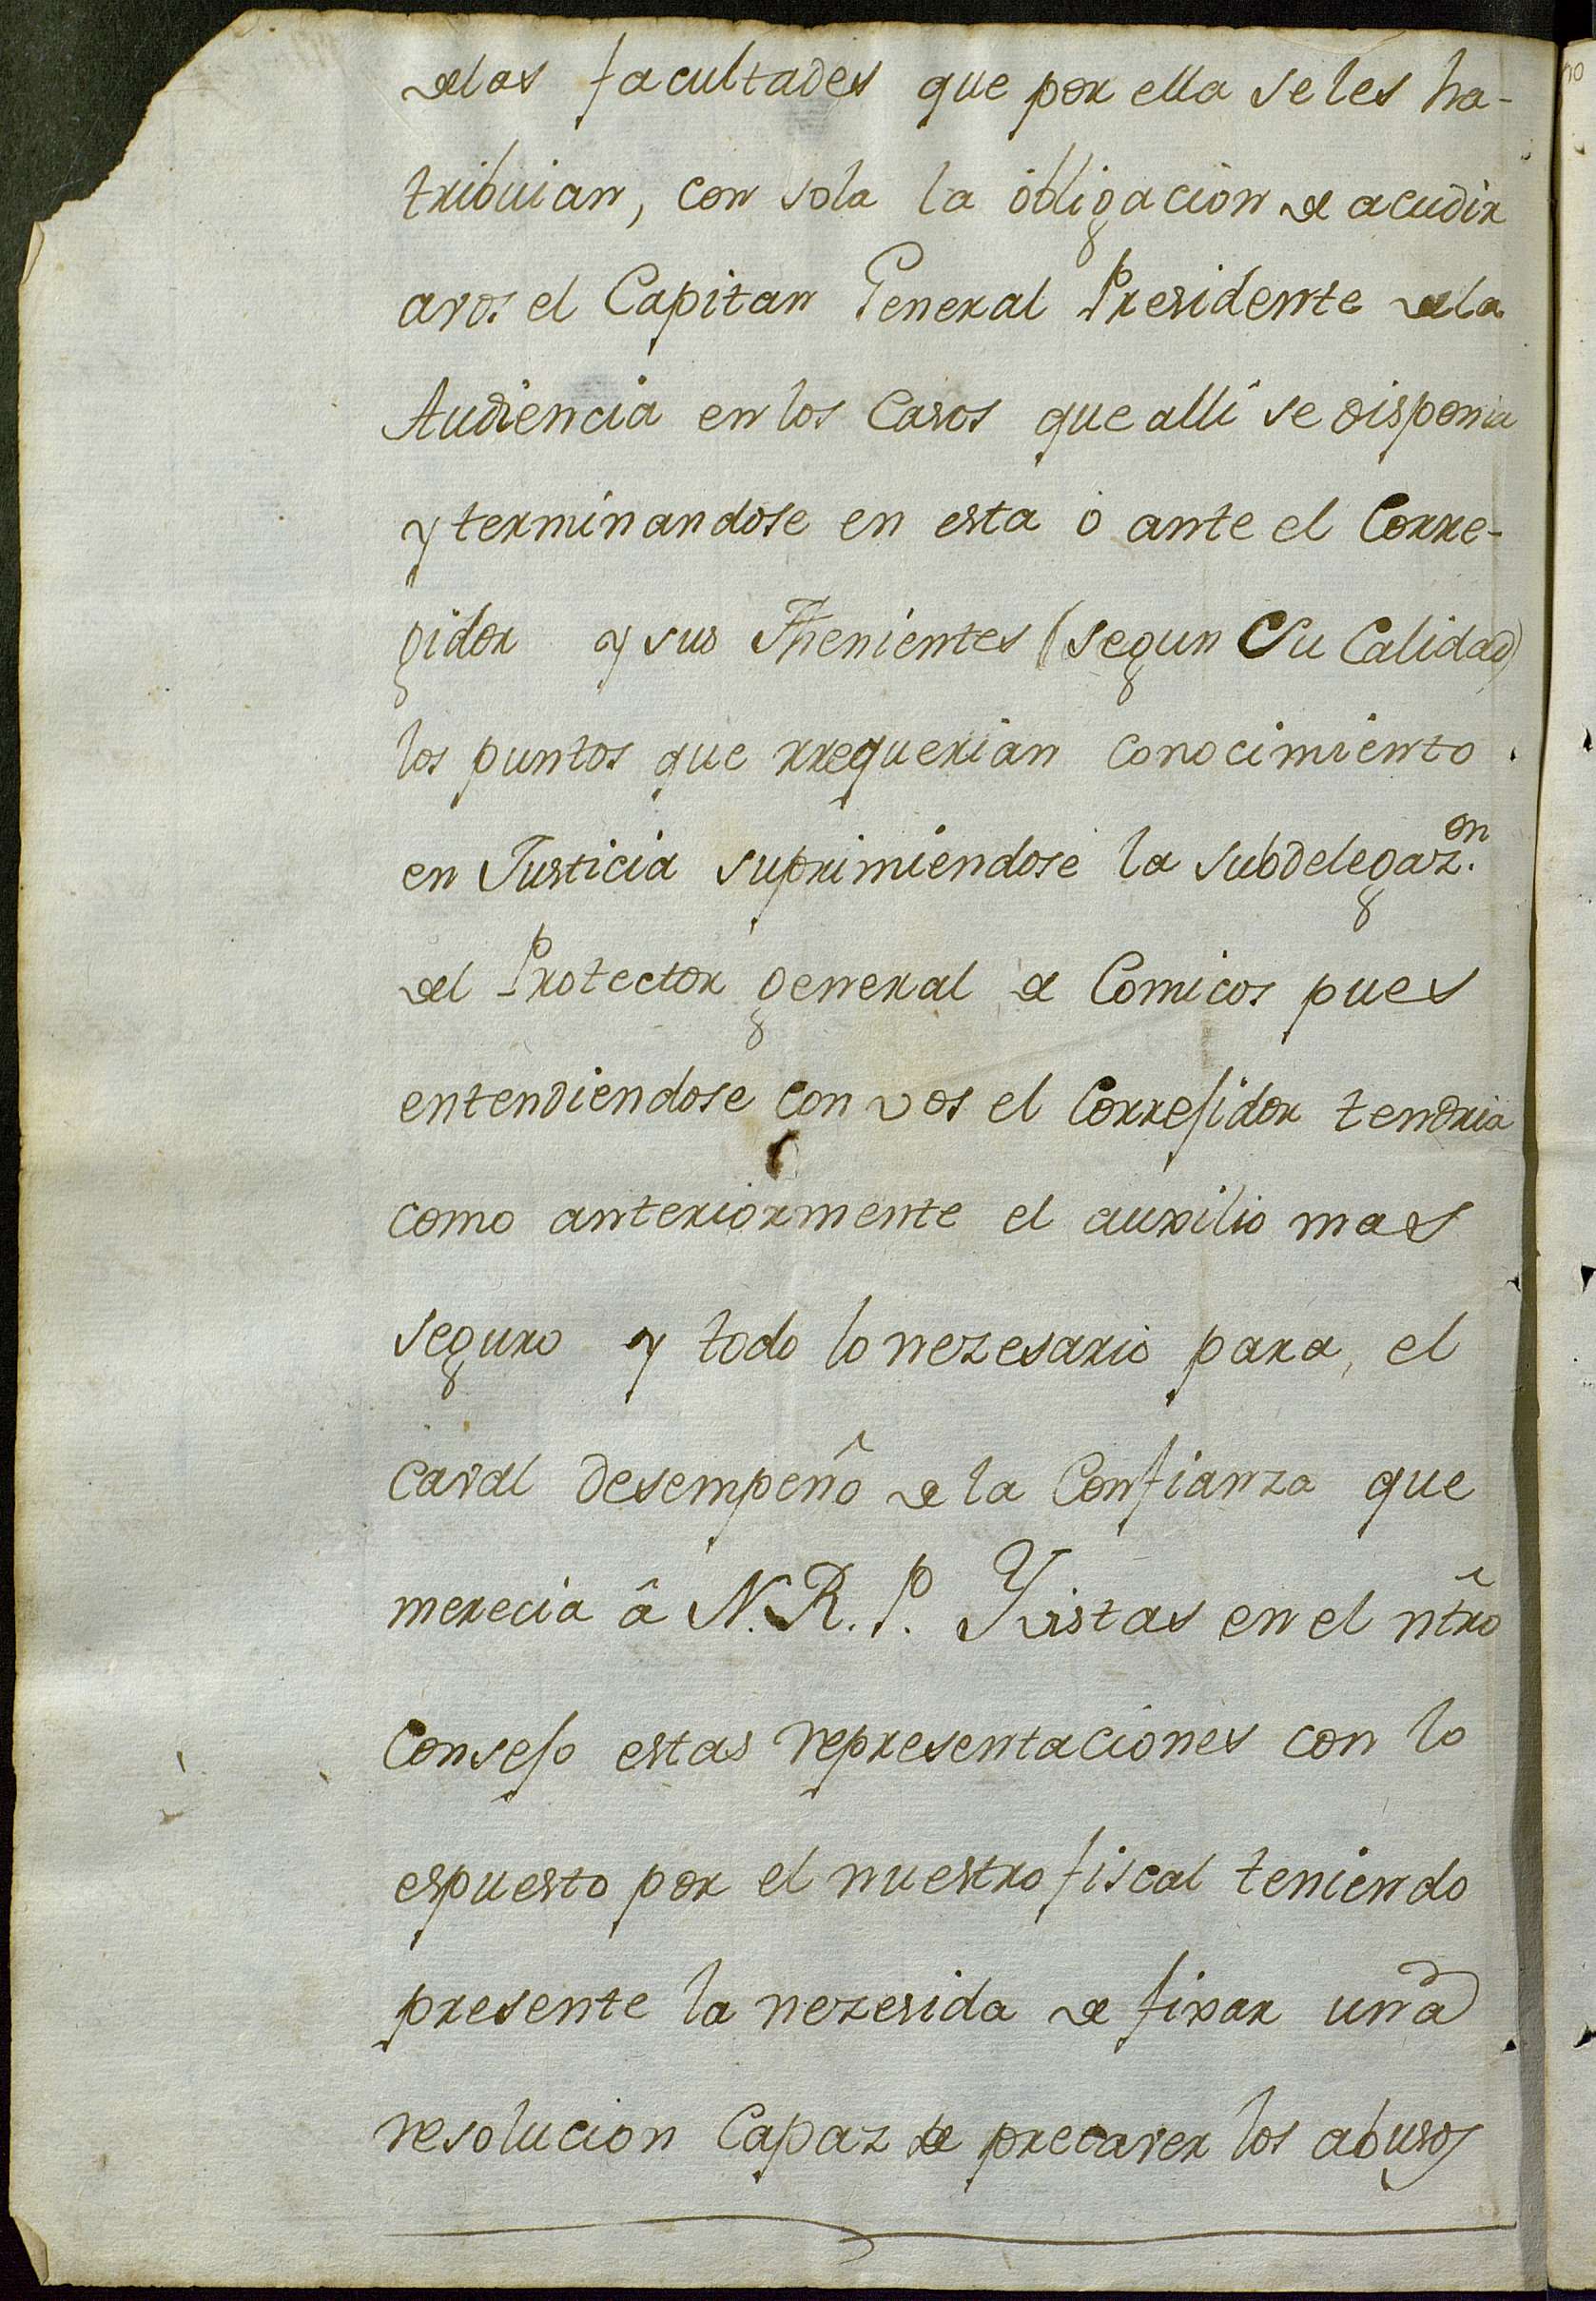 delas facultades que por ella seles ha-
tribuian, con sola la obligacion de acudir
avos el Capitan General Presidente dela
Audiencia en los Casos que alli se disponia
y terminandose en esta ó ante el Corre-
gidor y sus Thenientes (segun Su Calidad)
los puntos que rrequerian conocimiento
en Justicia suprimiendose la subdelegaz.on
del Protector general de Comicos pues
entendiendose con vos el Correjidor tendria
como anteriormente el auxilio mas
seguro y todo lo nezesario para el
caval desempeño de la Confianza que
merecia â N. R. P. Vistas en el ntro
Consejo estas representaciones con lo
espuesto por el nuestro fiscal teniendo
presente la nezesida de fixar una
resolucion Capaz de precaver los abusos